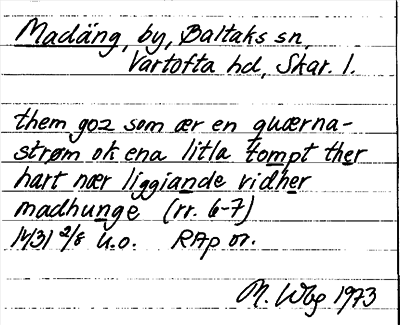 Madäng, by, Baltaks sn,
Vartofta hd, Skar. l.
them goz som ær en quærna-
strøm ok ena litla tompt ther
hart nær liggiande vidher
madhunge (rr. 6-7)
14/31 2/8 u.o. RAp or.
M. Wbg 1973